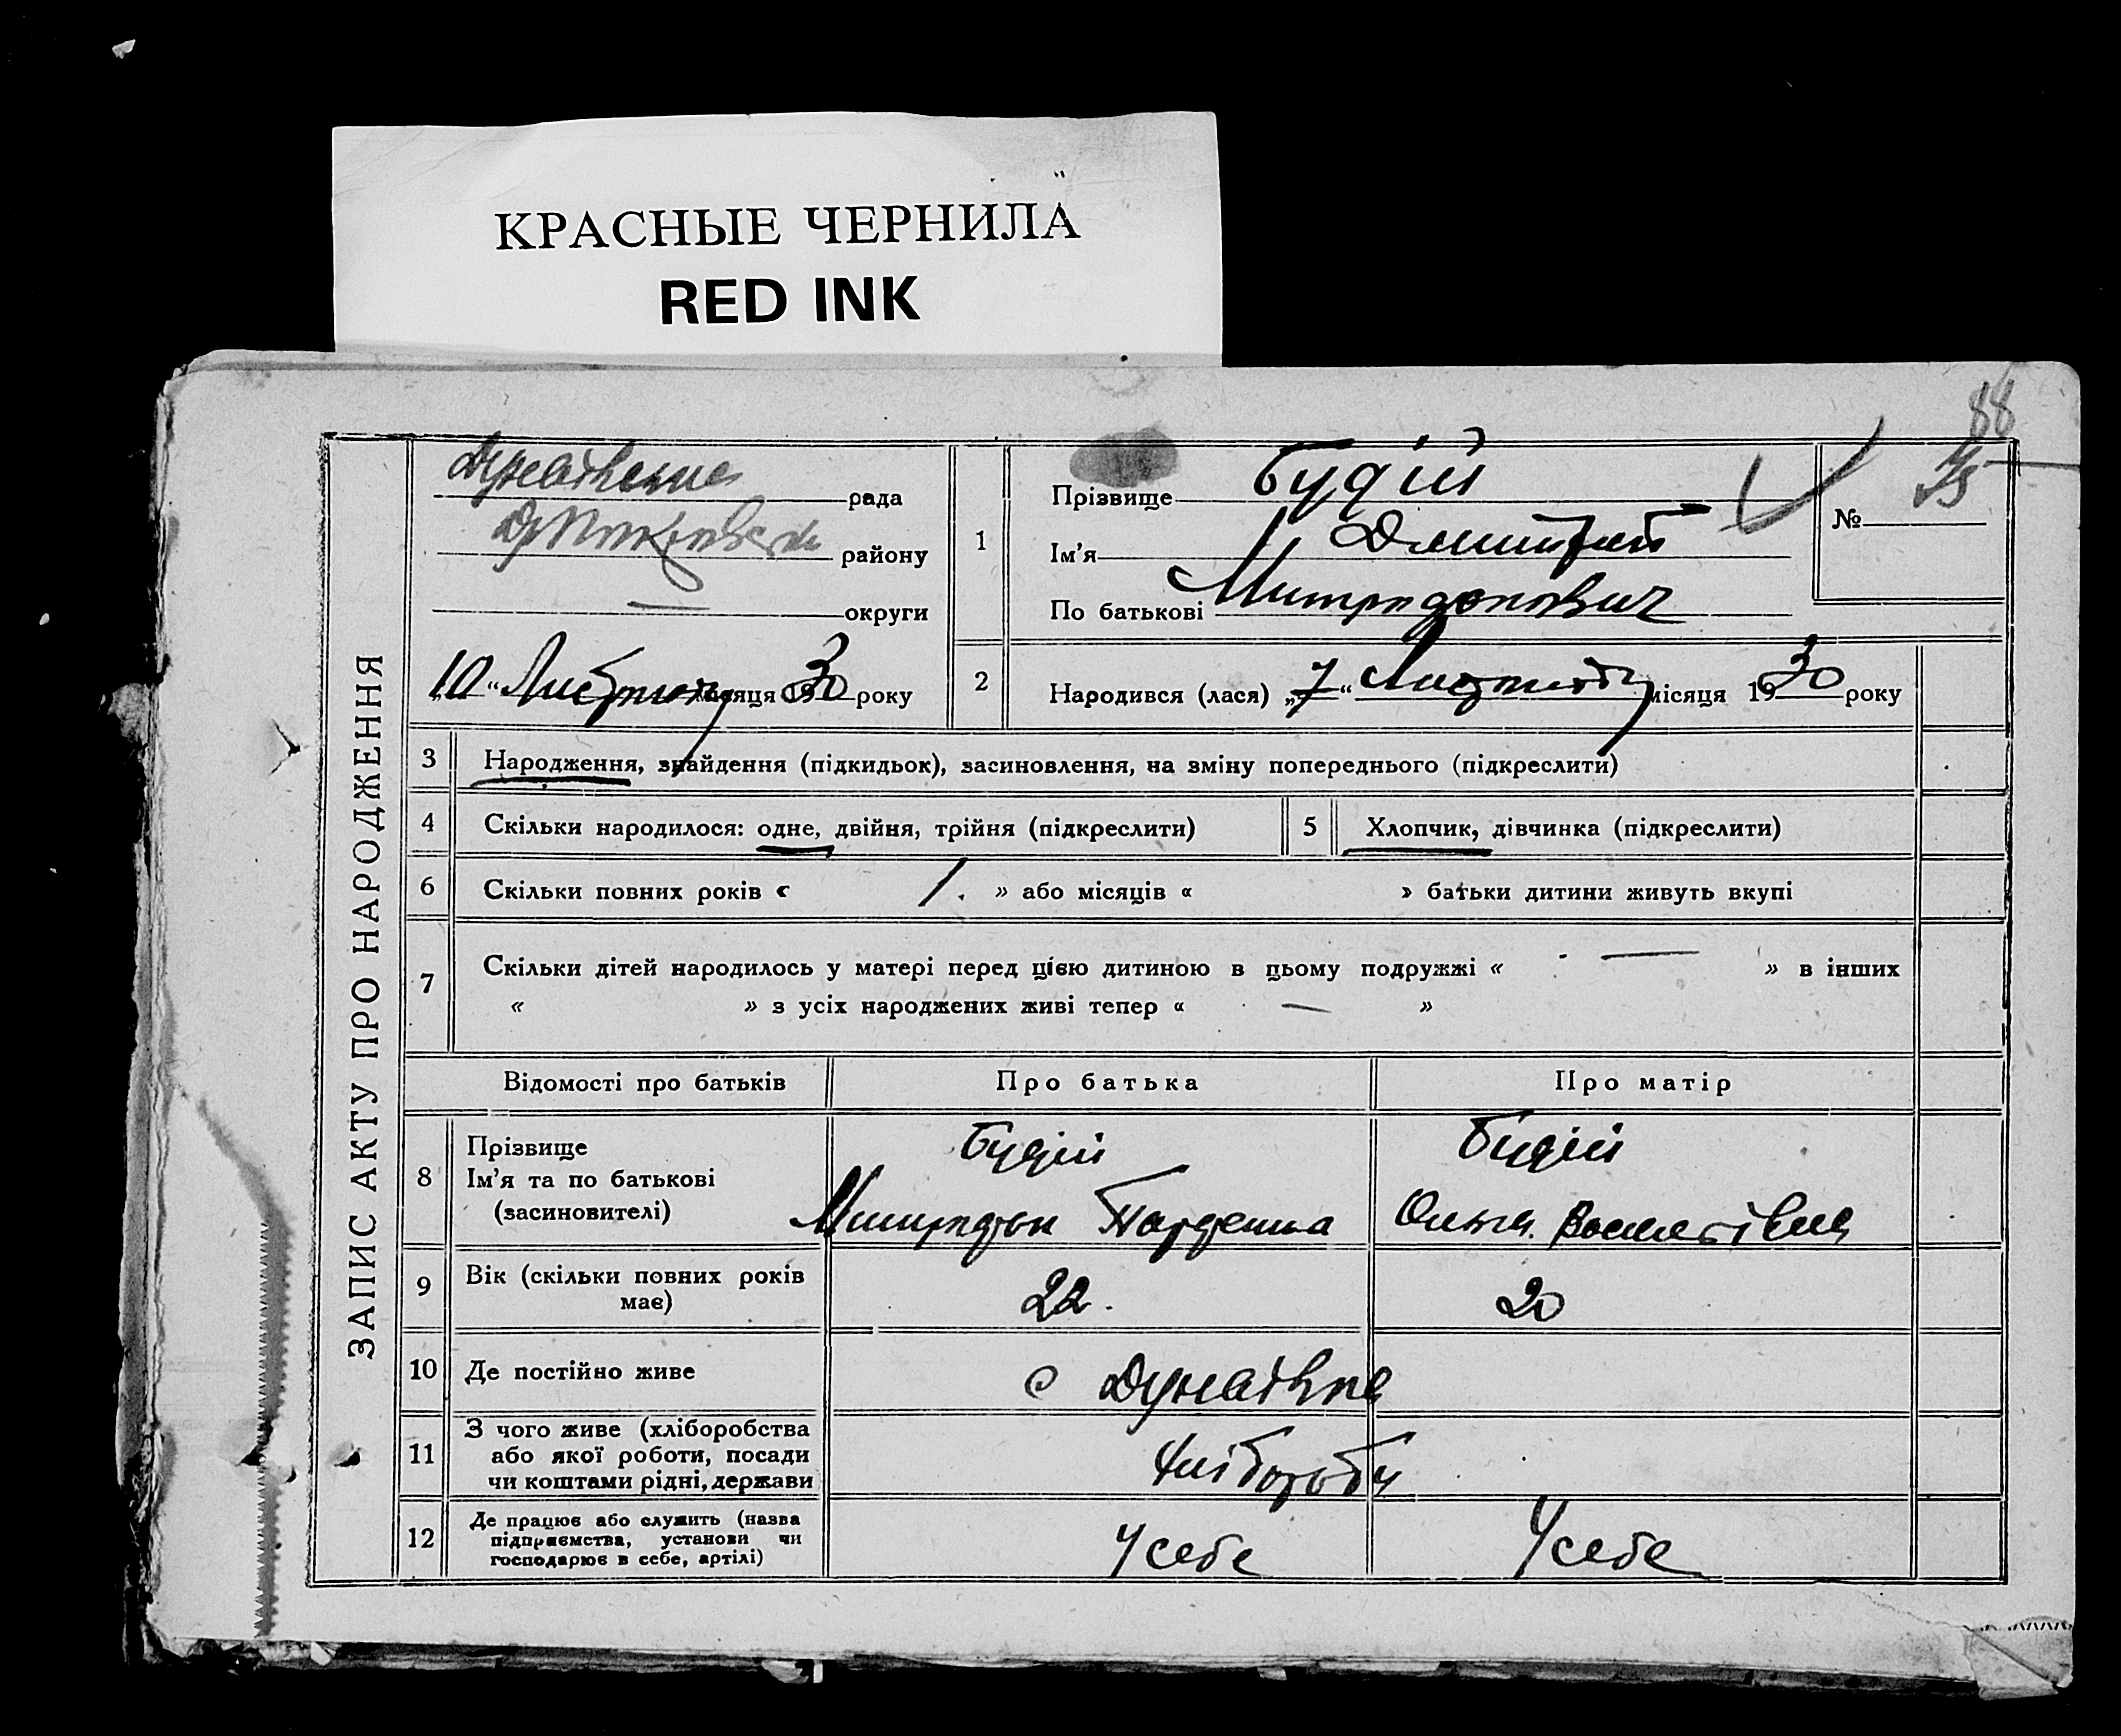 КРАСНЫЕ ЧЕРНИЛА
RED INK
88
ЗАПИС АКТУ ПРО НАРОДЖЕННЯ
рада
району
округи
„10“ місяця 1930 року
1
Прізвище Будій
Ім'я Дмитро
По батькові Митрофонович
№
2
Народився (лася) „7“ Листопаду місяця 1930 року
3 Народження, знайдення (підкидьок), засиновлення, на зміну попереднього (підкреслити)
4 Скільки народилося: одне, двійня, трійня (підкреслити)
5 Хлопчик, дівчинка (підкреслити)
6 Скільки повних років « 1. » або місяців « » батьки дитини живуть вкупі
7 Скільки дітей народилось у матері перед цією дитиною в цьому подружжі « — » в інших
« » з усіх народжених живі тепер « — »
Відомості про батьків Про батька Про матір
8 Прізвище Будій Будій
Ім'я та по батькові Митрофон Ольга Василівна
(засиновителі)
9 Вік (скільки повних років 22. 20
має)
10 Де постійно живе с Дунаівка
11 З чого живе (хліборобства
або якої роботи, посади Хліборобу
чи коштами рідні, держави
12 Де працює або служить (назва
підприємства, установи чи У себе У себе
господарює в себе, артілі)